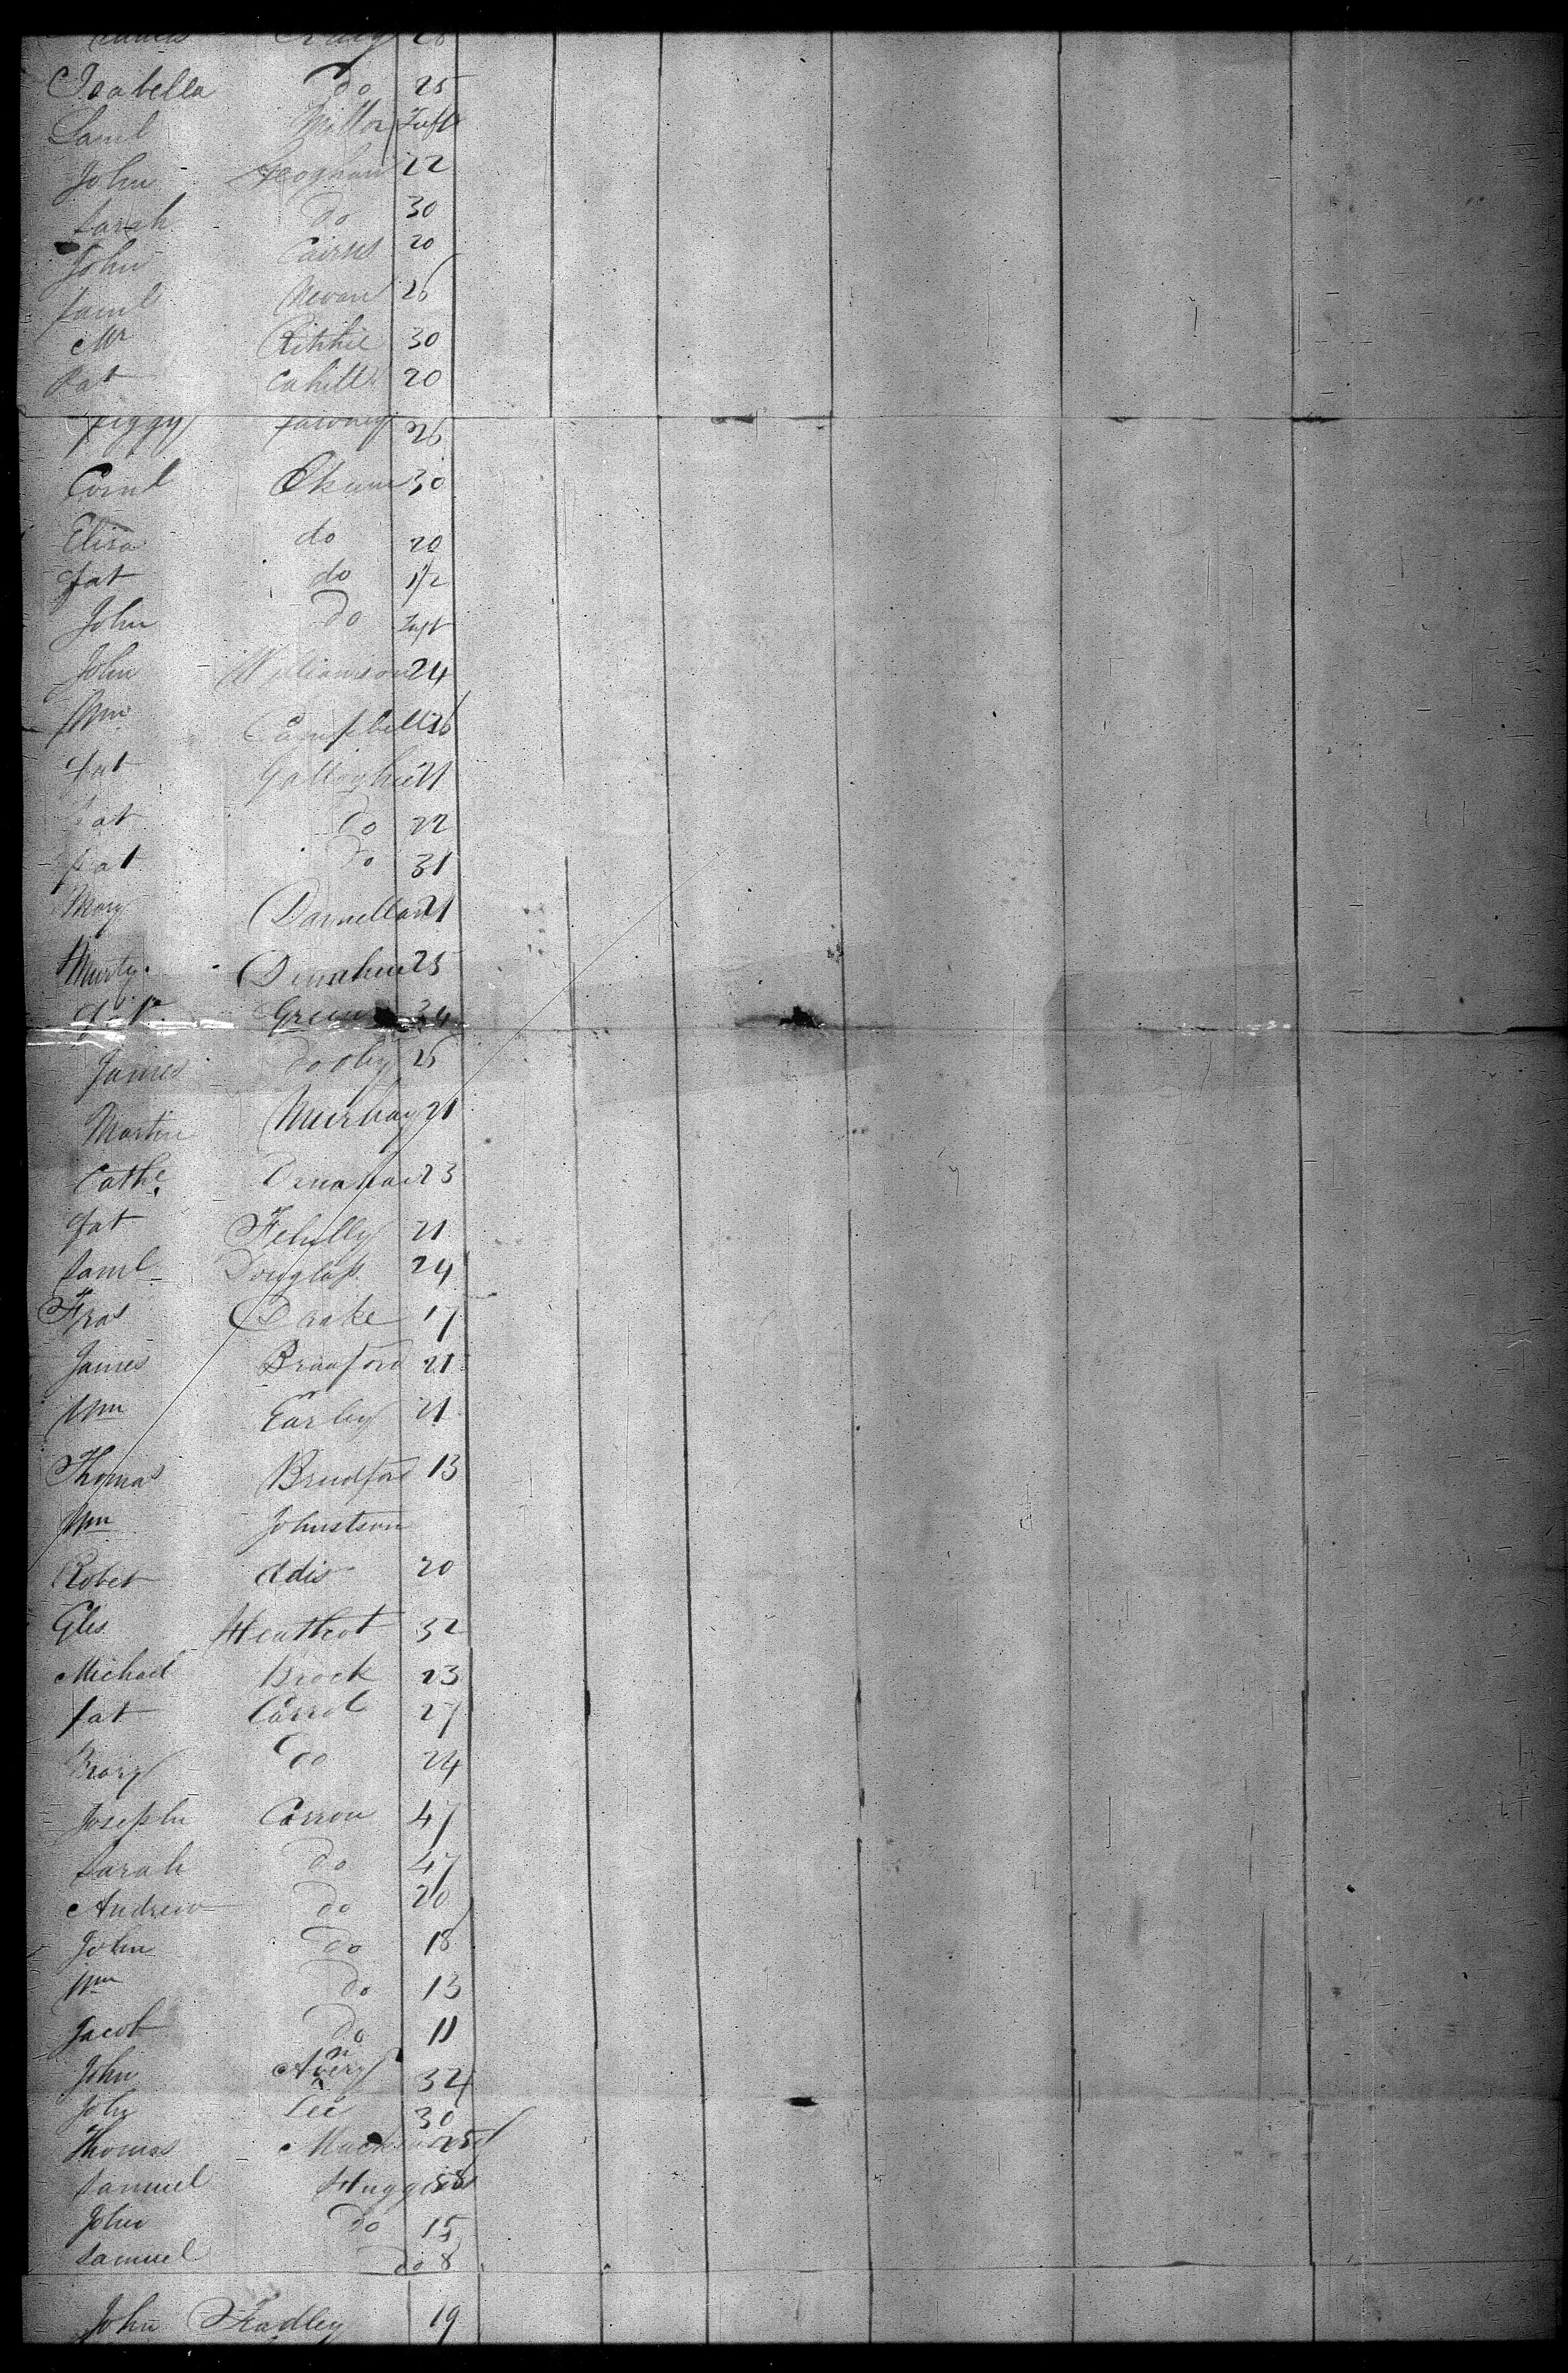 Craig 28
Isabella do 25
Saml Millor Inft
John Geoghan 22
Sarah do 30
John Cairns 20
Saml Nevan 26
Mr Ritchie 30
Pat Cahill 20
Peggy 26
Cornl 30
Elisa do 20
Pat do 1/2
John do Inft
John Williamson 24
Wm Campbell 26
Pat Gallagher 21
Pat do 22
Pat do 31
Mary Dannellan 21
Murty Denahue 25
Green 34
James Dooley 25
Martin Murray 21
Cathe 23
Pat 21
Saml Douglass 24
Fras Drake 17
James Bradford 21
Wm Earley 21
Thomas Bradford 13
Wm Johnstson
Robet Adis 20
Gles Heathcot 32
Michael Brock 23
Pat Carrol 27
Mary do 24
Joseph Carron 47
Sarah do 47
Andrew do 20
John do 18
Wm do 13
Jacob do 11
John 34
John Lee 30
Thomas 25
Samuel Huggins 38
John do 15
Samuel do 8
John Fradley 19